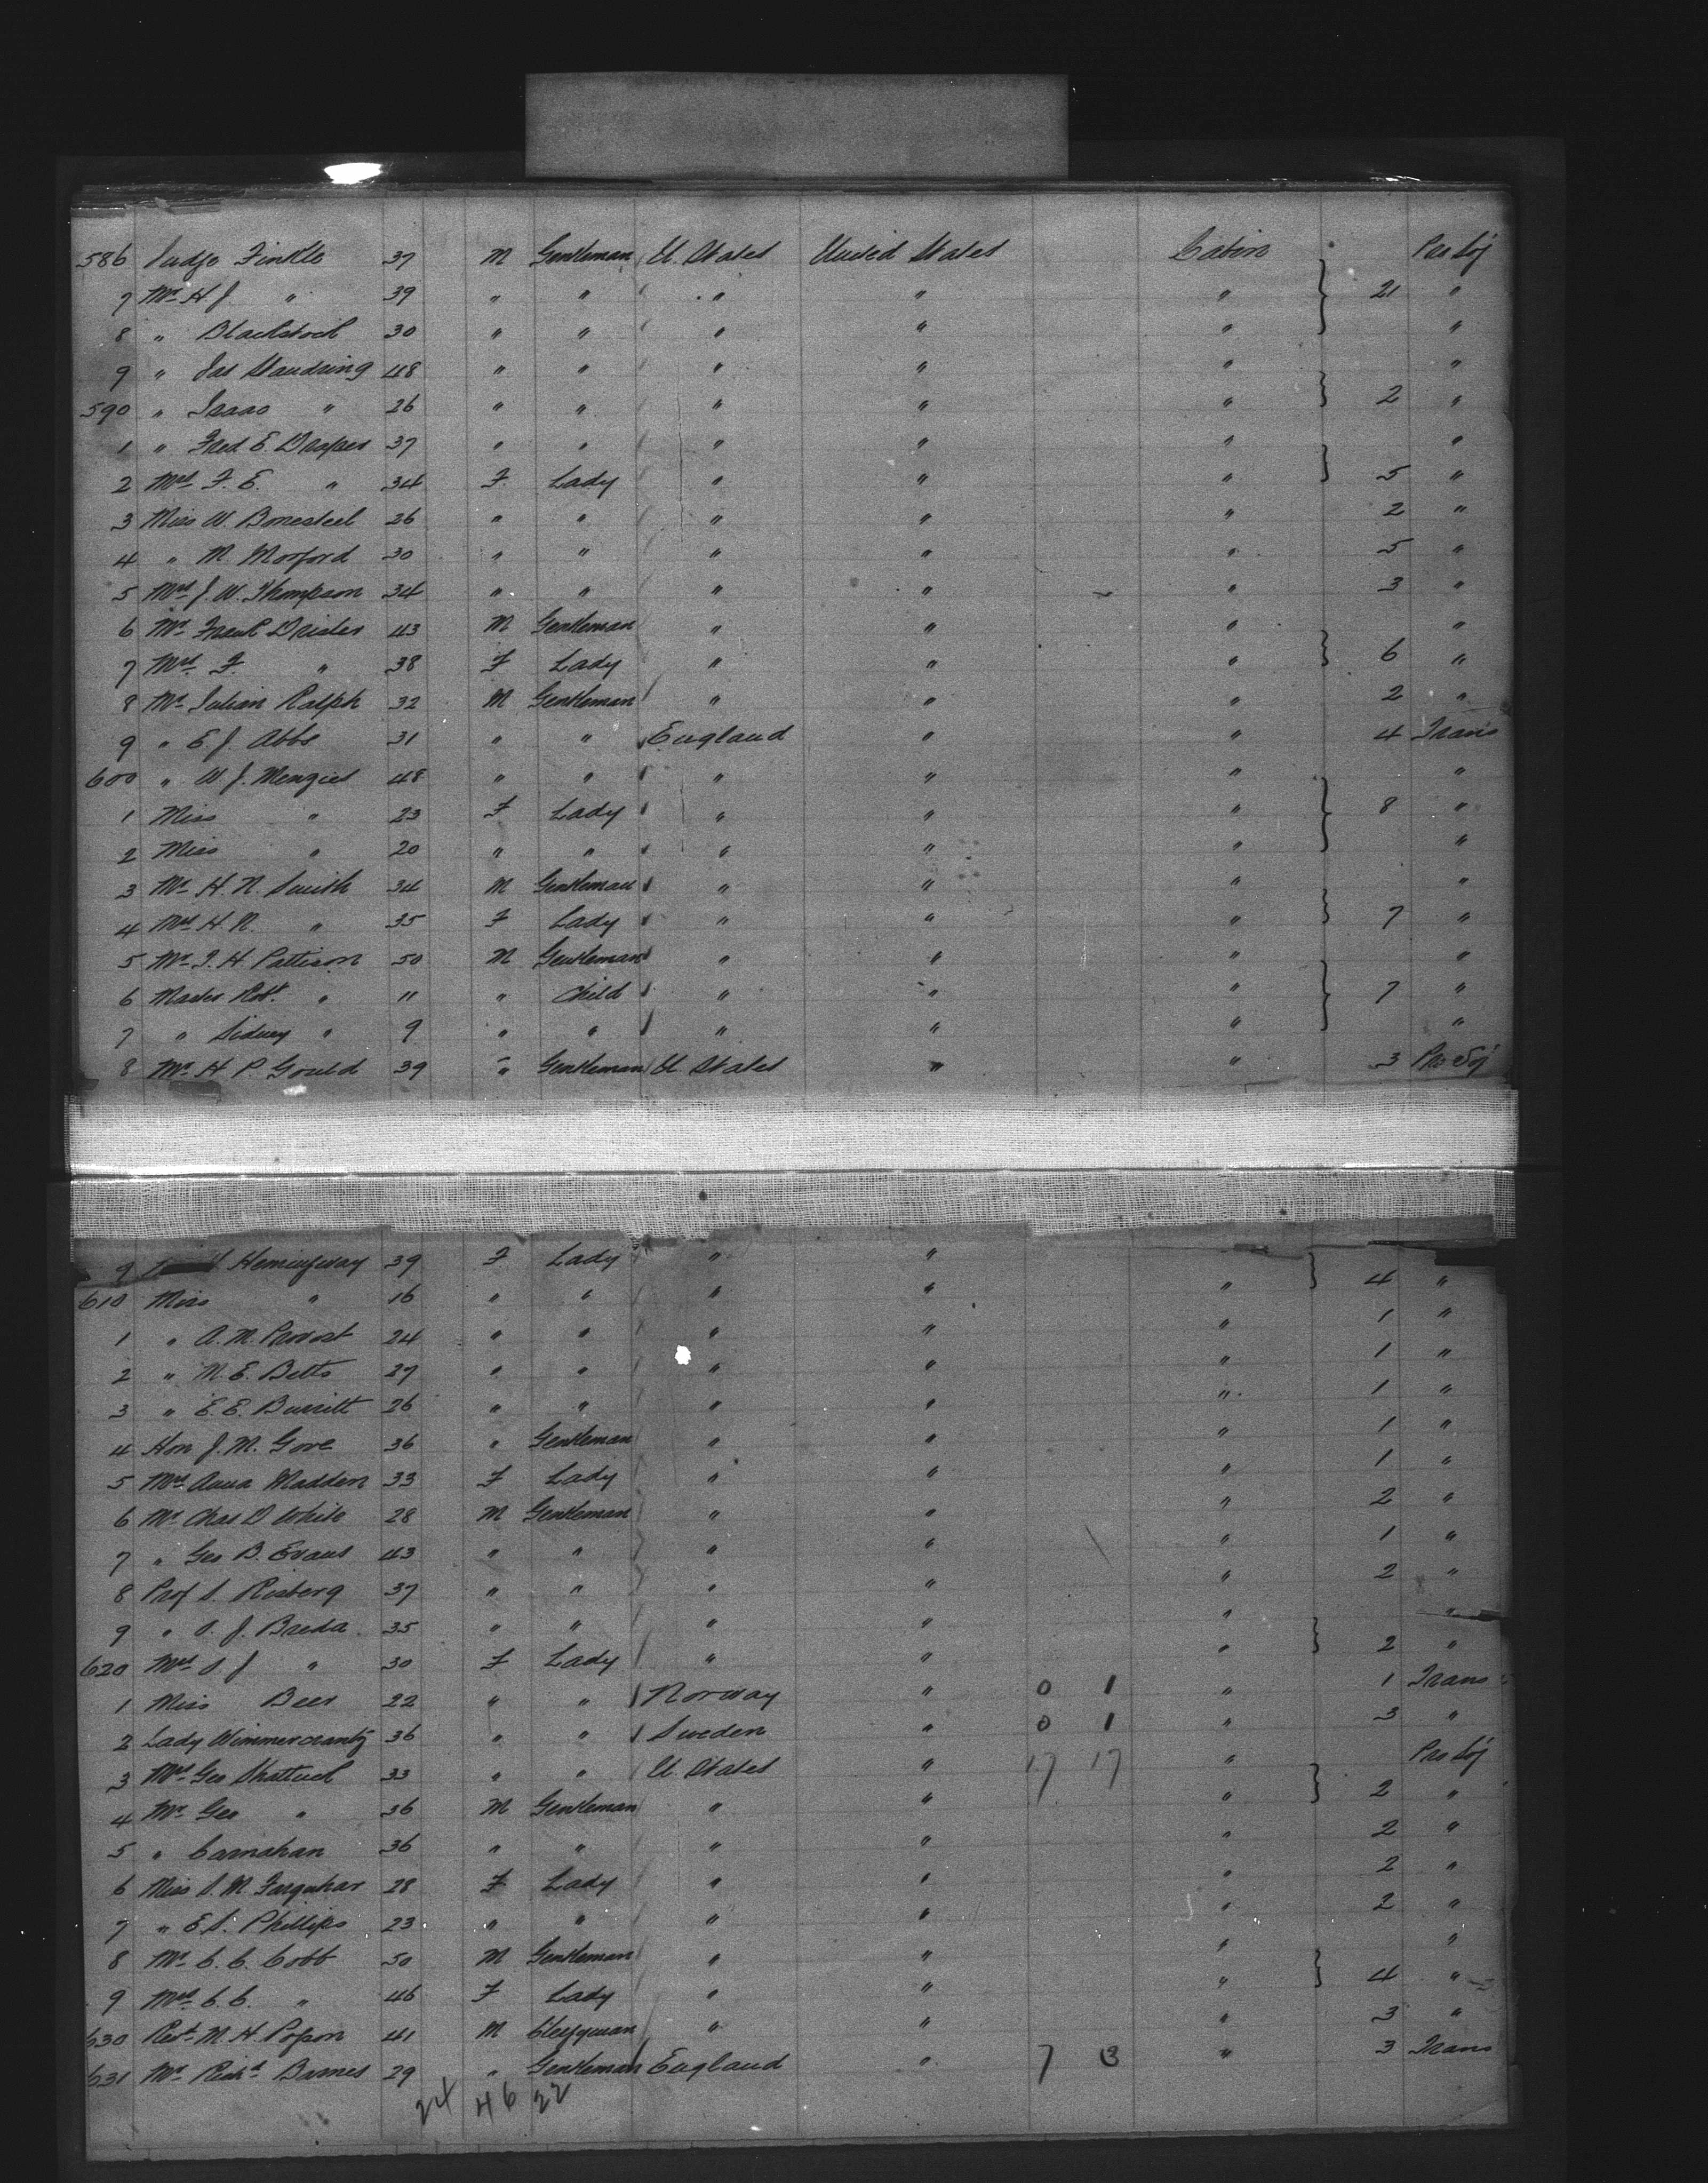 586 Judge Finkle 37 M Gentleman U. States United States Cabin Pro Soj
7 Mr H J " 39 " " " " " 21 "
8 " Blackstock 30 " " " " " "
9 " Jas Standring 48 " " " " " "
590 " Isaac " 26 " " " " " 2 "
1 " Fred E. Draper 37 " " " " " "
2 Mrs F. E. " 34 F Lady " " " 5 "
3 Miss W. Bonesteel 26 " " " " " 2 "
4 " M. Morford 30 " " " " " 5 "
5 Mrs J. W. Thompson 34 " " " " " 3 "
6 Mr Drisler 43 M Gentleman " " " "
7 Mrs F. " 38 F Lady " " " 6 "
8 Mr Julian Ralph 32 M Gentleman " " " 2 "
9 " E J. Abbs 31 " " England " " 4 Trans
600 " W J. Menzies 48 " " " " " "
1 Miss " 23 F Lady " " " 8 "
2 Miss " 20 " " " " " "
3 Mr H. N. Smith 34 M Gentleman " " " "
4 Mrs H. N. " 35 F Lady " " " 7 "
5 Mr T. H. Pattison 50 M Gentleman " " " "
6 Master Robt. " 11 " Child " " " 7 "
7 " Sidney " 9 " " " " " "
8 Mr H P. Gould 39 " Gentleman U. States " " 3 Pro Soj
9 Hemingway 39 F Lady " "
610 Miss " 16 " " " " " 4 "
1 " A. M. Provost 24 " " " " " 1 "
2 " N. E. Betts 27 " " " " " 1 "
3 " E. E. Burritt 26 " " " " " 1 "
4 Hon J. M. Gove 36 " Gentleman " " " 1 "
5 Mrs Anna Madden 33 F Lady " " " 1 "
6 Mr Chas D White 28 M Gentleman " " " 2 "
7 " Geo B. Evans 43 " " " " " 1 "
8 Prof S. Risberg 37 " " " " " 2 "
9 " O. J. Breda 35 " " " " " "
620 Mrs O J " 30 F Lady " " " 2 "
1 Miss Beer 22 " " Norway " 0 1 " 1 Trans
2 Lady Wimmercrantz 36 " " Sweden " 0 1 " 3 "
3 Mrs Geo Shattuck 33 " " U. States " 17 17 " Pro Soj
4 Mr Geo " 36 M Gentleman " " " 2 "
5 " Carnahan 36 " " " " " 2 "
6 Miss S. M. Farquhar 28 F Lady " " " 2 "
7 " E S. Phillips 23 " " " " " 2 "
8 Mr C. C. Cobb 50 M Gentleman " " " "
9 Mrs C. C. " 46 F Lady " " " 4 "
630 Revd M. H. 41 M Clergyman " " " 3 "
631 Mr Richd Barnes 29 " Gentleman England " 7 8 " 3 Trans
24 46 22